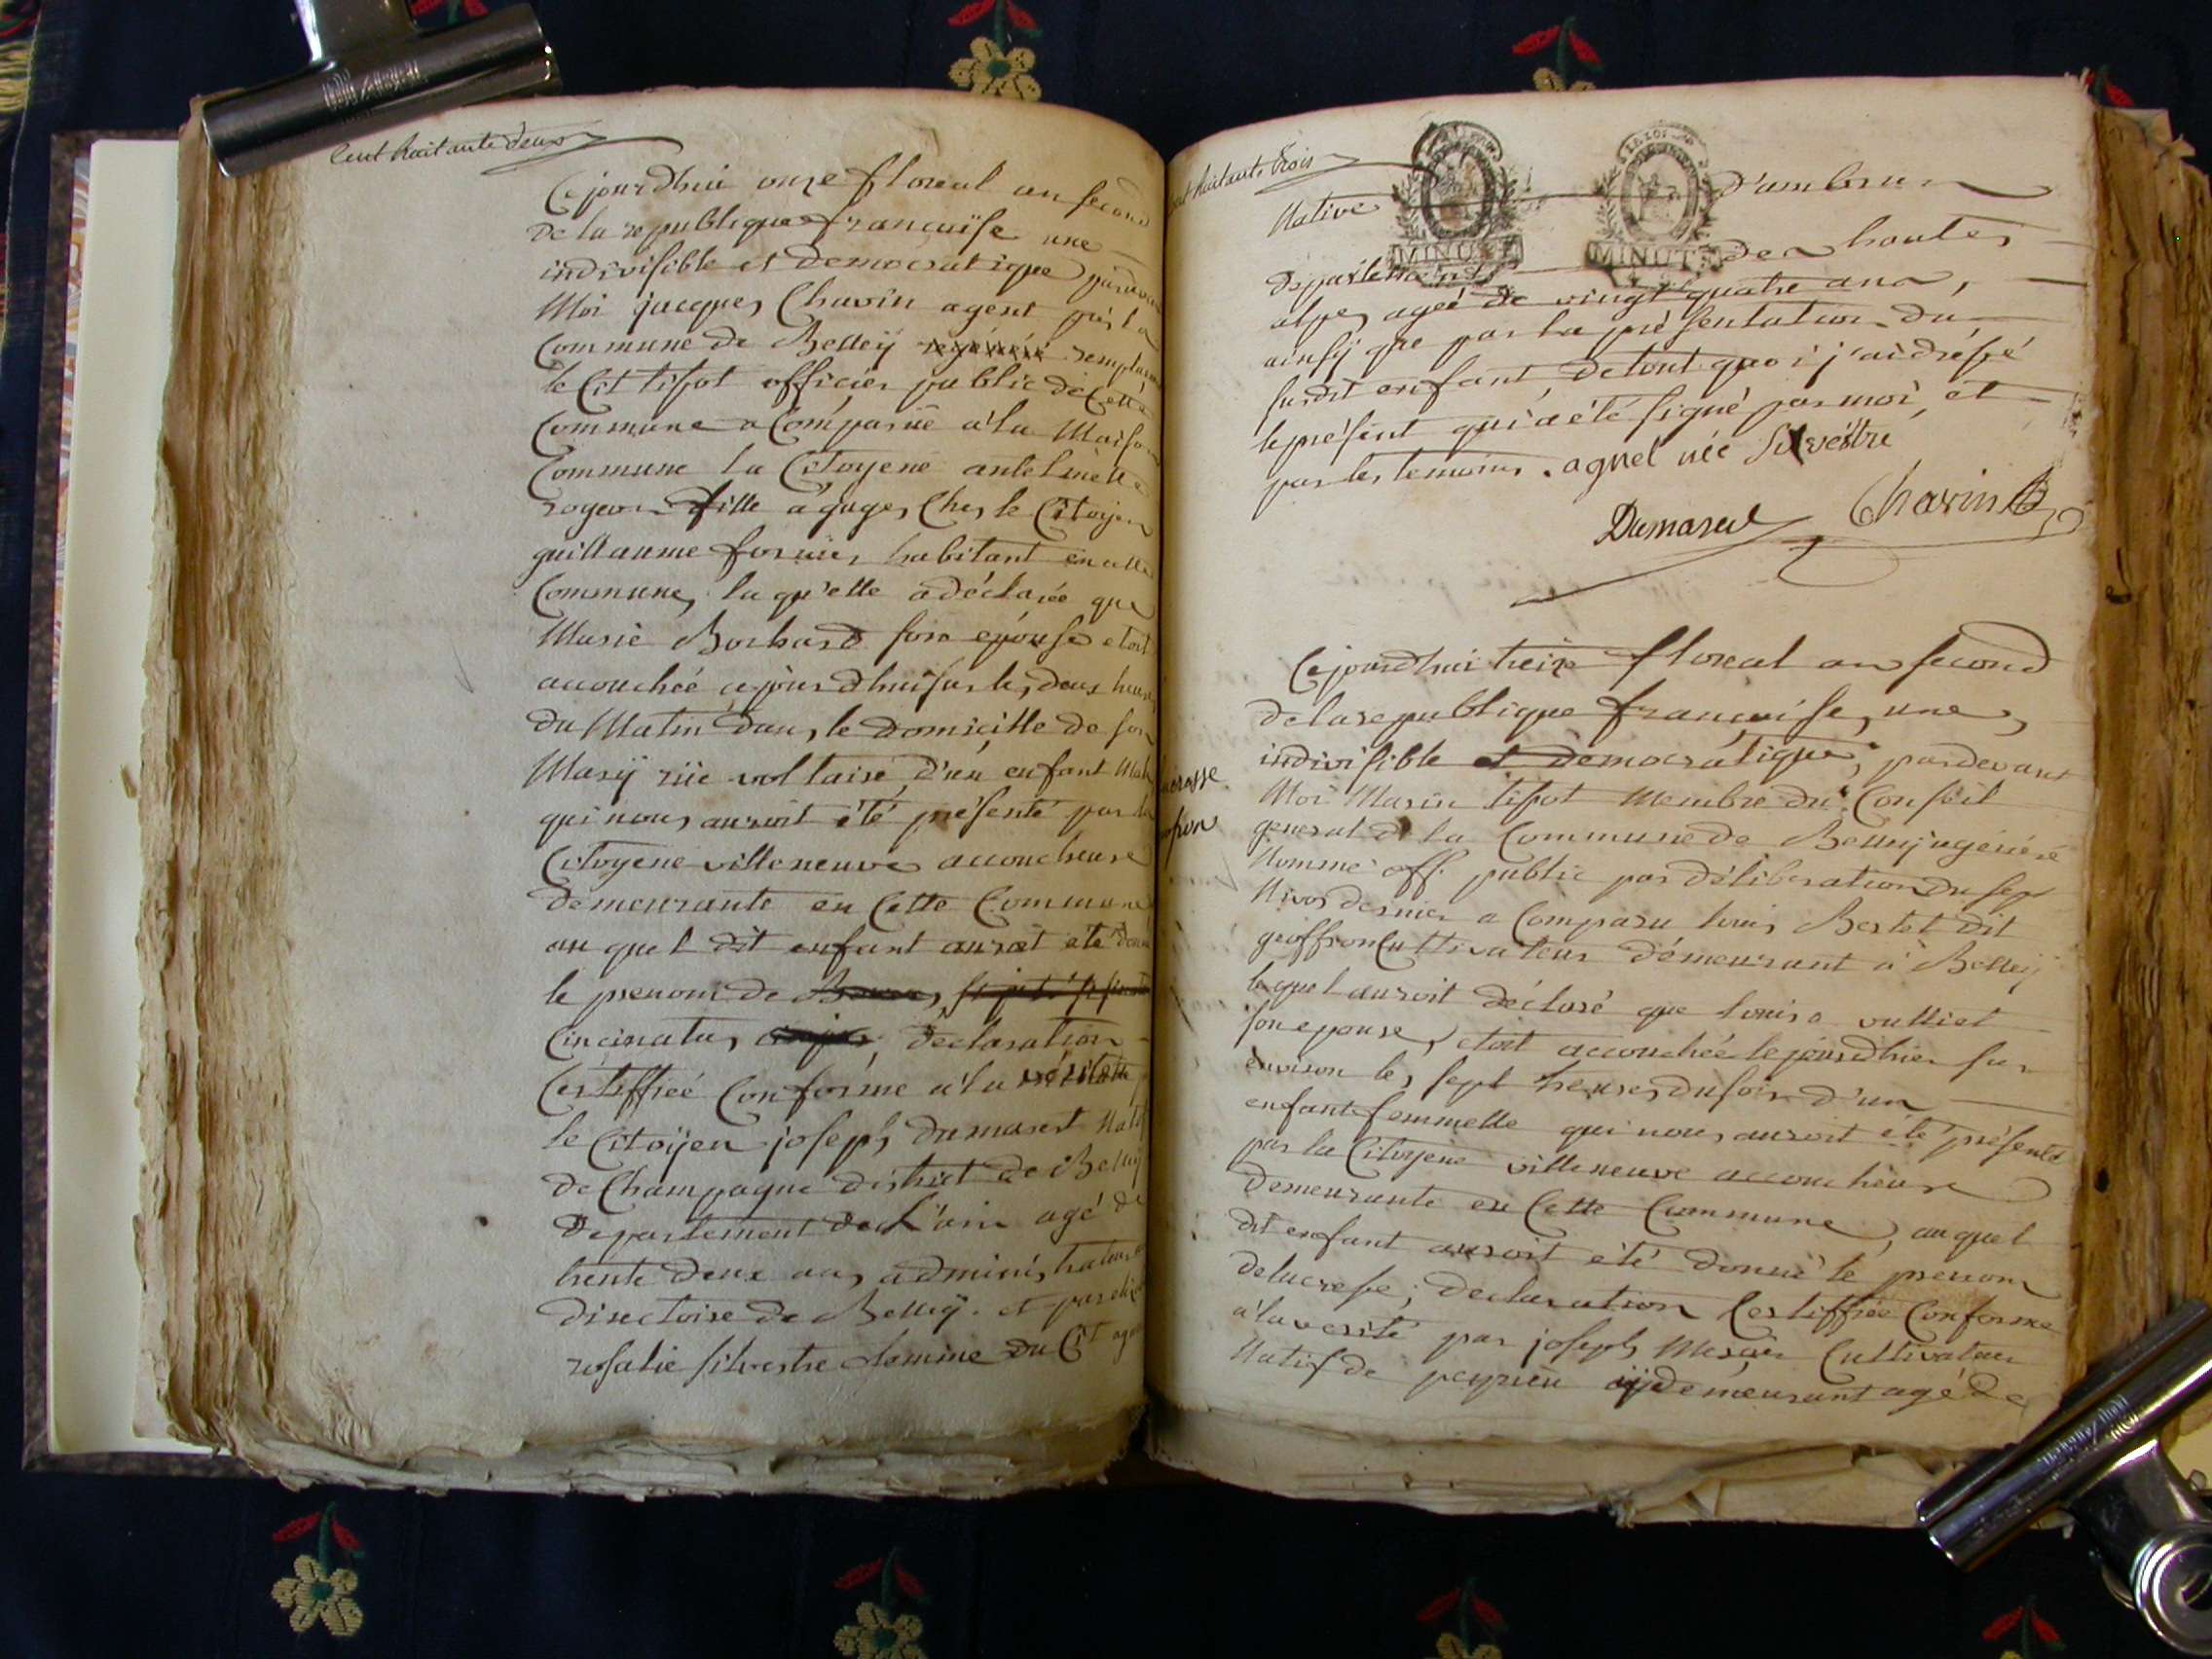 Cent huitante deux
Cejourdhui onze floreal an second
de la republique francaise une
indivisible et democratique pardevant
Moi jacques Chavin agent près la
Commune de Belleÿ remplacant
le Cit tisot officier public de Cette
Commune a Comparüe à la Maison
Commune la Citoyene antelmette
rogeon fille a gages Ches le Citoyen
guillaume habitant en cette
Commune, la qu'elle a déclarée que
Marie Borhard son epouse etoit
accouchée cejourdhui sur les deux heures
du Matin dans le domicille de son
Marÿ rüe voltaire, d'un enfant Male
qui nous auroit été présenté par la
Citoyene villeneuve accoucheuse
demeurante en Cette Commune
au quel dit enfant auroit eté donné
le prenom de
Cincinatus, déclaration
Certiffiée Conforme à la vérité
le Citoÿen joseph dumarest natif
de Champagne district de Belleÿ
departement de L'ain agé de
trente deux ans administrateur
directoire de Belleÿ. et par
rosalie silvestre femme du Cit
Cent huitante trois
Native d'ambrun
MINUTE MINUTE
departement des hautes
alpes ageé de vingt quatre ans,
ainsÿ que par la présentation du
susdit enfant, de tout quoi j'ai dréssé
le présent qui a été signé par moi, et
par les temoins. agnel née Silvéstre
Dumarest Chavin
Cejourdhui treize floreal an second
de la republique francaise, une,
indivisible et démocratique, pardevant
Moi Marin tisot Membre du Conseil
lucresse
general de la Commune de Belleÿ
Nommé off. public par délibération du sept
Nivos dernier a Comparu louis Bertet dit
geoffron Cultivateur démeurant à Belleÿ
lequel auroit déclaré que louise vulliet
son epouse, etoit accouchée le jourdhier sur
environ les sept heures du soir d'un
enfant femmelle qui nous auroit eté présenté
par la Citoyene villeneuve accoucheuse
demeurante en Cette Commune, auquel
dit enfant auroit été donné le prenom
de lucresse; declaration Certiffiée Conforme
à la verité par joseph Cultivateur
Natif de peyrieu ÿ demeurant agé de